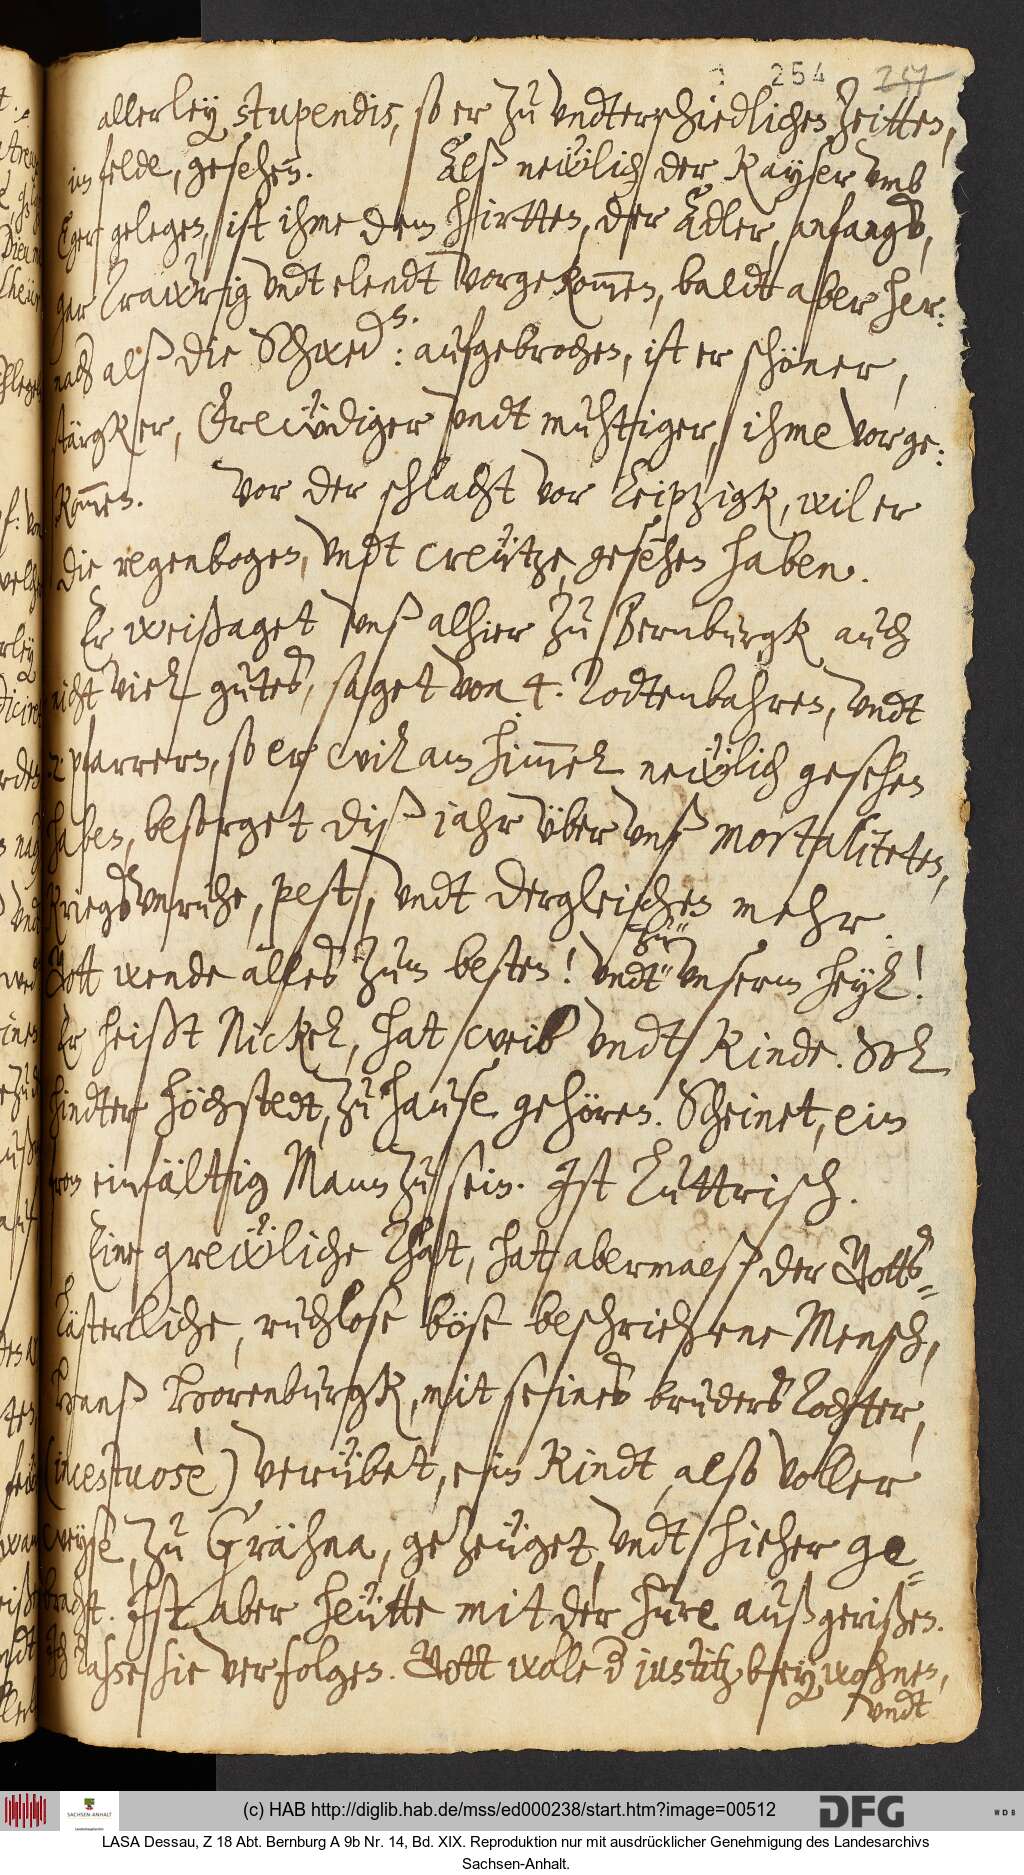 254 257
allerley stupendis, so er zu vndterschiedlichen Zeitten,
im felde, gesehen. Alß neẅlich der Kayser vmb
Eger gelegen, ist ihme dem hirtten, der Adler, anfangs,
gar Trawrig vndt elendt vorgekommen, baldt aber her:
nach alß die Schwed:en aufgebrochen, ist er schöner,
stärgker, frewdiger vndt muhtiger, ihme vorge:
kommen. Vor der schlacht vor Leiptzigk, wil er
die regenbogen, vndt creütze, gesehen haben.
Er weißaget vnß alhier zu Bernburgk auch
nicht viel gutes, saget von 4. Todtenbahren, vndt
2 pfarrern, so er wil am himmel neẅlich gesehen
haben, besorget diß jahr über vnß mortaliteten,
Kriegsvnruhe, pest, vndt dergleichen mehr.
Gott wende alles zum besten! vndt zu vnserm heyl!
Er heißt Nickel, hat weib vndt Kinde. Sol
hindter höchstedt, zu hause gehören. Scheinet, ein
from einfältig Mann zu sein. Ist Luttrisch.
Eine greẅliche That, hat abermalß der Gotts=
Lästerliche, ruchlose böse beschriehene Mensch,
Hanß Borenburgk, mit seines bruders Tochter,
(incestuosè) verübet, ein Kindt, also voller
weyse, zu Gröhna, gezeüget, vndt hieher ge=
bracht. Ist aber heütte mit der hure außgerißen.
Ich lasse sie verfolgen. Gott wolle d justitz beywohnen,
vndt
(c) HAB http://diglib.hab.de/mss/ed000238/start.htm?image=00512
SACHSEN-ANHALT
DFG
WDB
LASA Dessau, Z 18 Abt. Bernburg A 9b Nr. 14, Bd. XIX. Reproduktion nur mit ausdrücklicher Genehmigung des Landesarchivs
Sachsen-Anhalt.